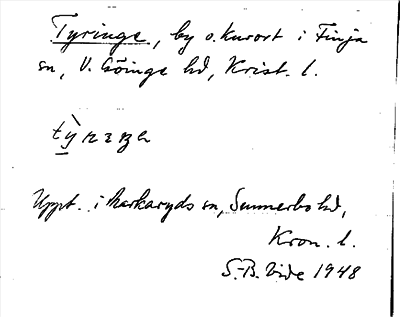 Tyringe, by o. kurort i Finja
sn, V. Göinge hd, Krist. l.
Uppt. i Markaryds sn, Sunnerbo hd,
Kron. l.
S.-B. Vide 1948